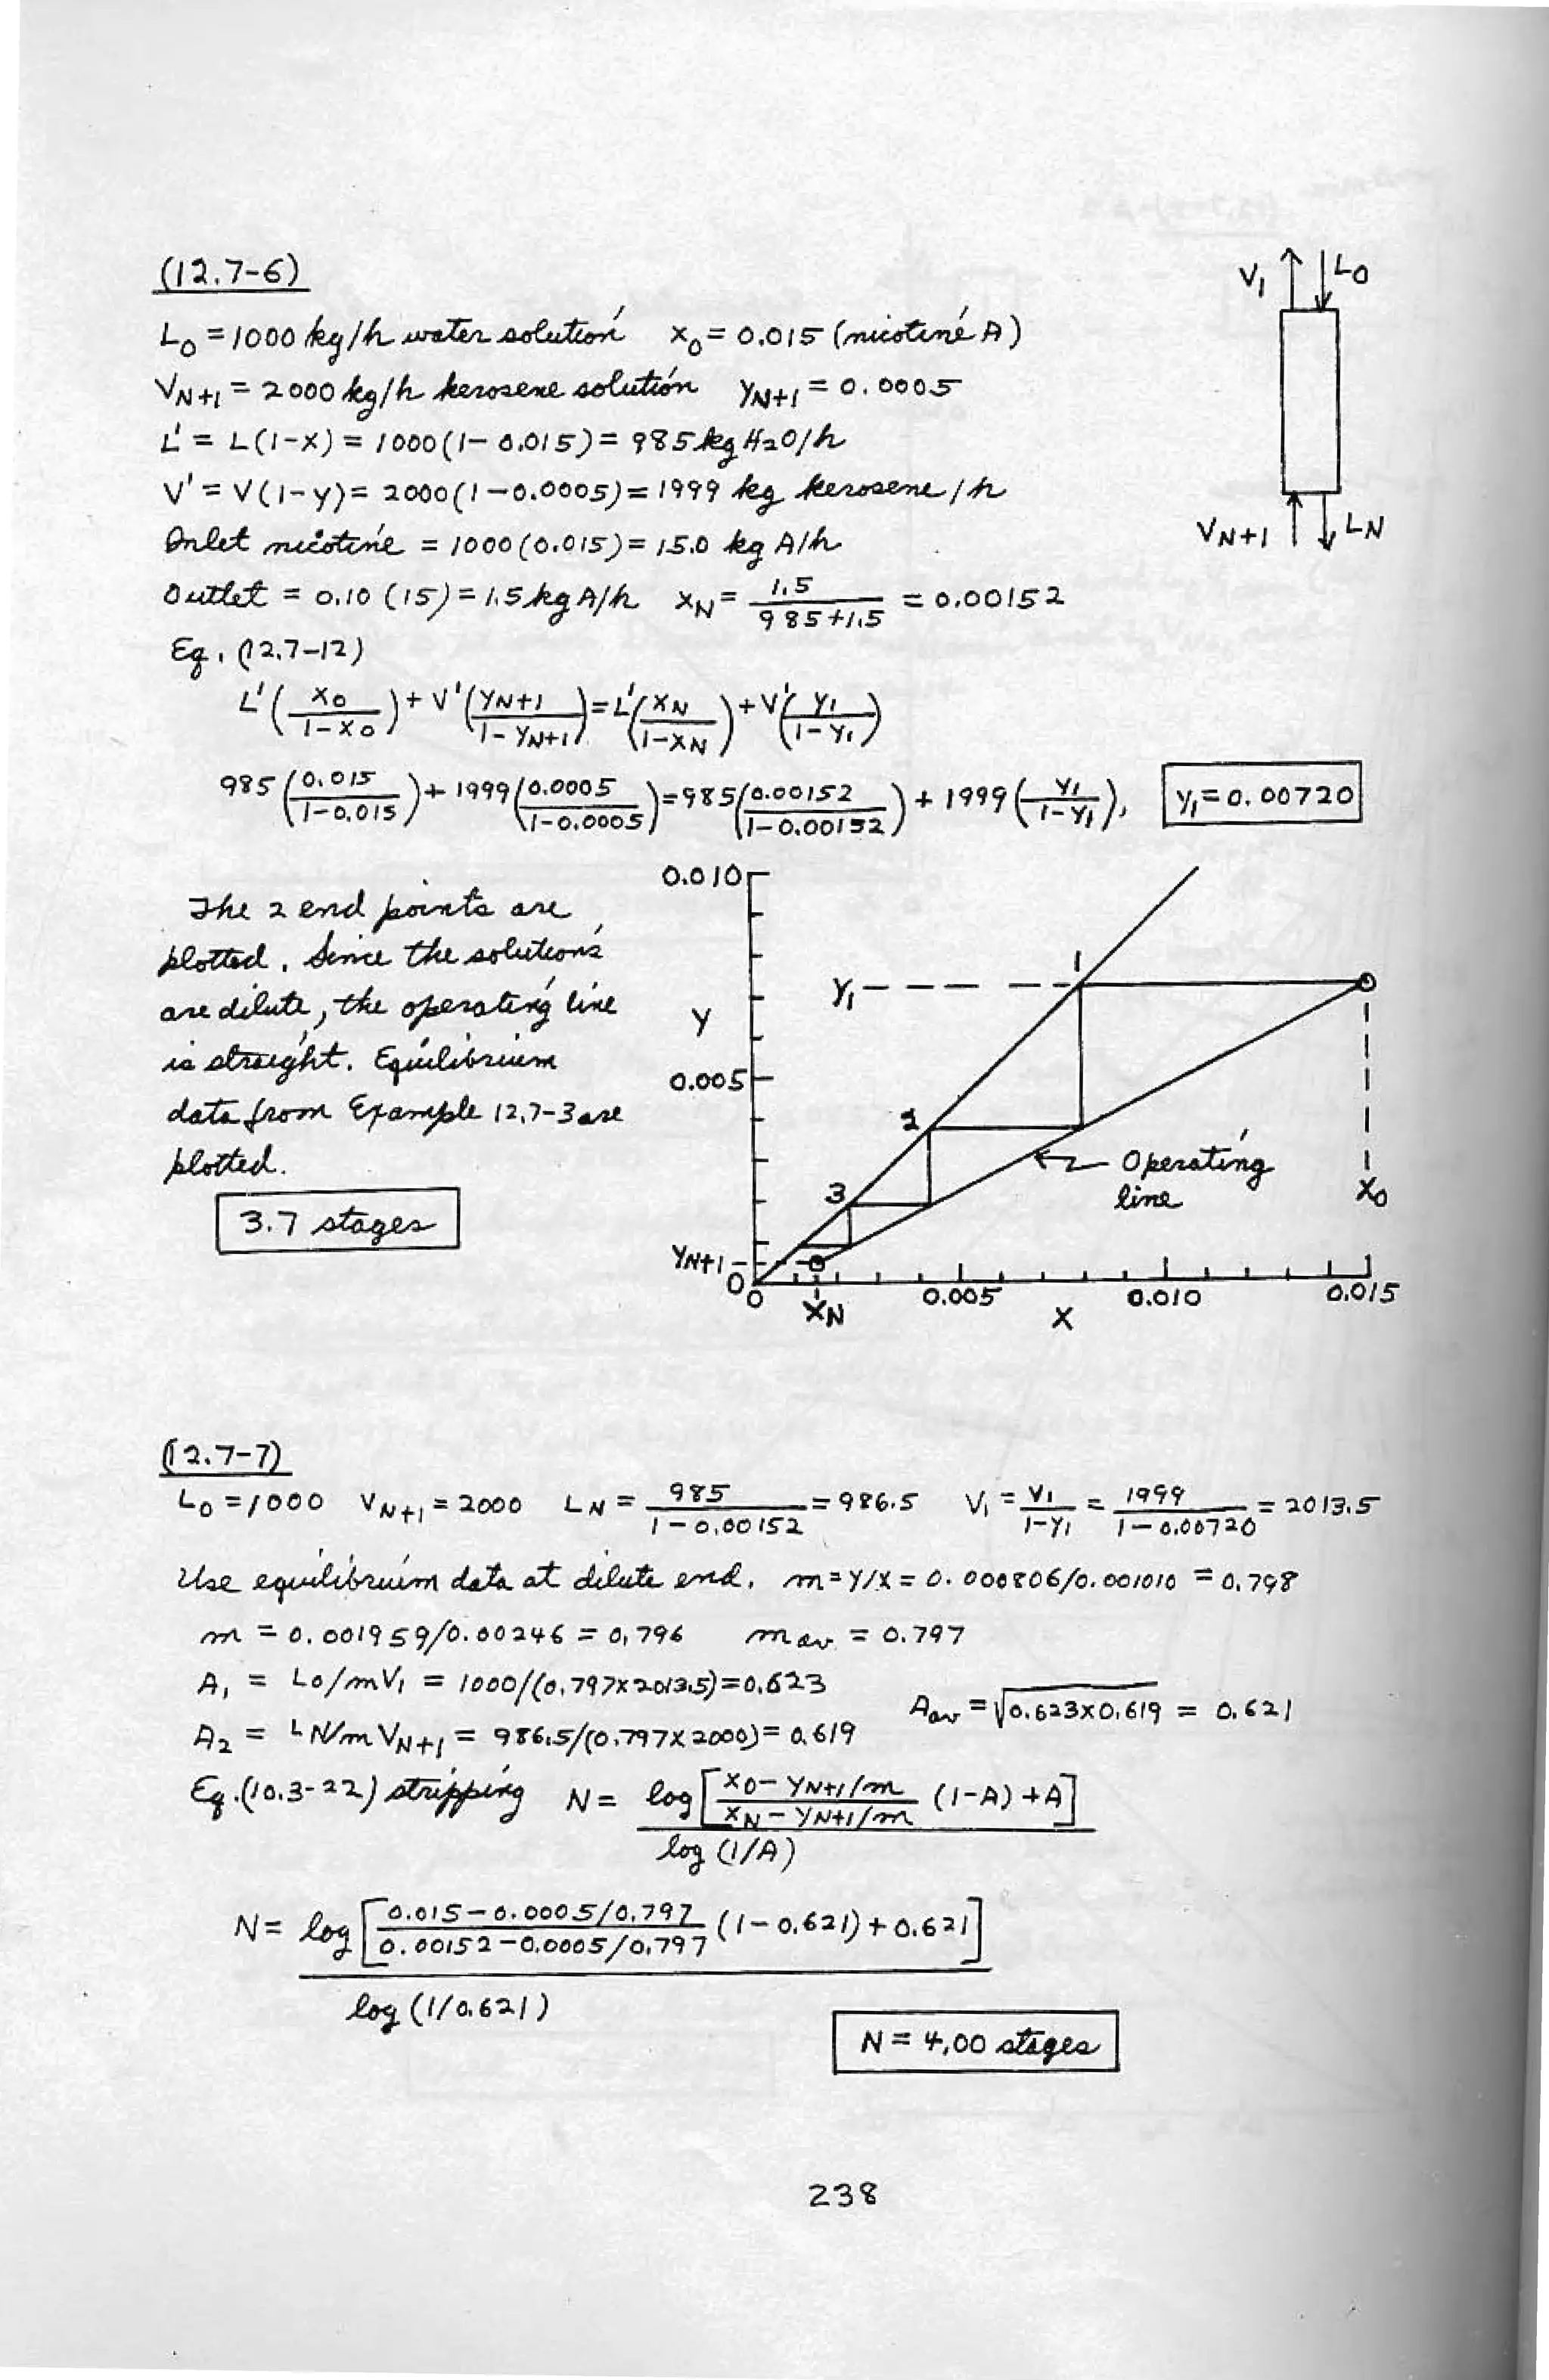 (12.7-6)
V₁ L₀
L₀ = 1000 kg/h water solution x₀ = 0.015 (nicotine A)
V_N+1 = 2000 kg/h kerosene solution y_N+1 = 0.0005
L' = L(1-x) = 1000(1-0.015) = 985 kg H₂O/h
V' = V(1-y) = 2000(1-0.0005) = 1999 kg kerosene/h
Inlet nicotine = 1000(0.015) = 15.0 kg A/h
V_N+1 L_N
Outlet = 0.10 (15) = 1.5 kg A/h x_N = 1.5/(985+1.5) = 0.00152
Eq. (12.7-12)
L'(x₀/(1-x₀)) + V'(y_N+1/(1-y_N+1)) = L'(x_N/(1-x_N)) + V'(y₁/(1-y₁))
985(0.015/(1-0.015)) + 1999(0.0005/(1-0.0005)) = 985(0.00152/(1-0.00152)) + 1999(y₁/(1-y₁)), y₁ = 0.00720
The 2 end points are
plotted. Since the solutions
are dilute, the operating line
is straight. Equilibrium
data from Example 12.7-3 are
plotted.
3.7 stages
0.010
1
y₁
y
0.005
2
Operating
line
3
x₀
y_N+1
0
0 x_N 0.005 x 0.010 0.015
(12.7-7)
L₀ = 1000 V_N+1 = 2000 L_N = 985/(1-0.00152) = 986.5 V₁ = V₁/(1-y₁) = 1999/(1-0.00720) = 2013.5
Use equilibrium data at dilute end. m = y/x = 0.000806/0.001010 = 0.798
m = 0.001959/0.00246 = 0.796 m_av. = 0.797
A₁ = L₀/mV₁ = 1000/(0.797x2013.5) = 0.623
A_av = √(0.623x0.619) = 0.621
A₂ = L_N/mV_N+1 = 986.5/(0.797x2000) = 0.619
Eq.(10.3-22) stripping N = log[(x₀-y_N+1/m)/(x_N-y_N+1/m) (1-A)+A] / log(1/A)
N = log[(0.015-0.0005/0.797)/(0.00152-0.0005/0.797) (1-0.621)+0.621] / log(1/0.621)
N = 4.00 stages
238